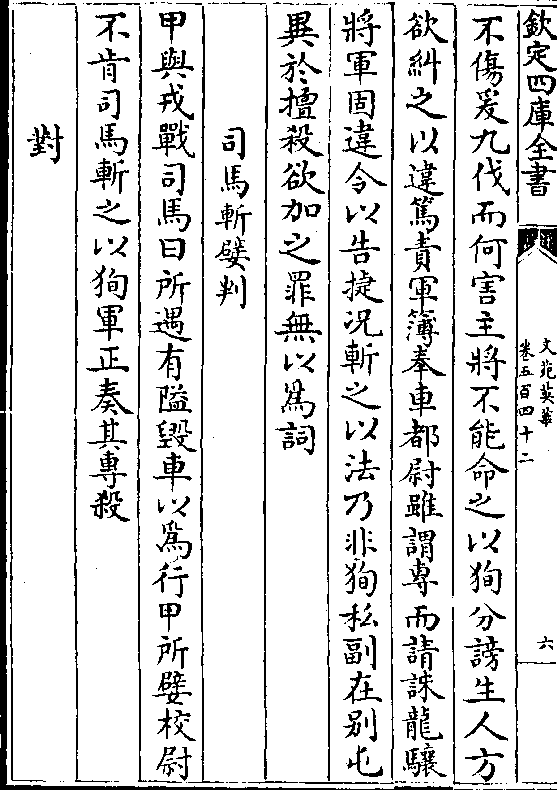 欽定四庫全書
文苑英華
卷五百四十二
六
不傷爰九伐而何害主將不能命之以狥分謗生人方
欲糾之以違篤責軍簿奉車都尉雖謂專而請誅龍驤
將軍固違令以告捷況斬之以法乃非狥私副在别屯
異於擅殺欲加之罪無以為詞
司馬斬嬖判
甲與戎戰司馬曰所遇有隘毀車以為行甲所嬖校尉
不肯司馬斬之以狥軍正奏其專殺
對